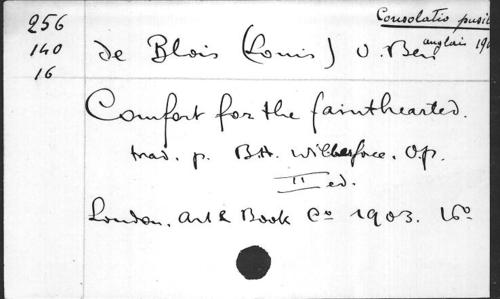 256
140
16
Consolatio pusil
anglais 190
de Blois (Louis) O. Ben
Comfort for the fainthearted.
trad. p. B.A. Wilberforce. Op.
II ed.
London. Art & Book Cº 1903. 16º